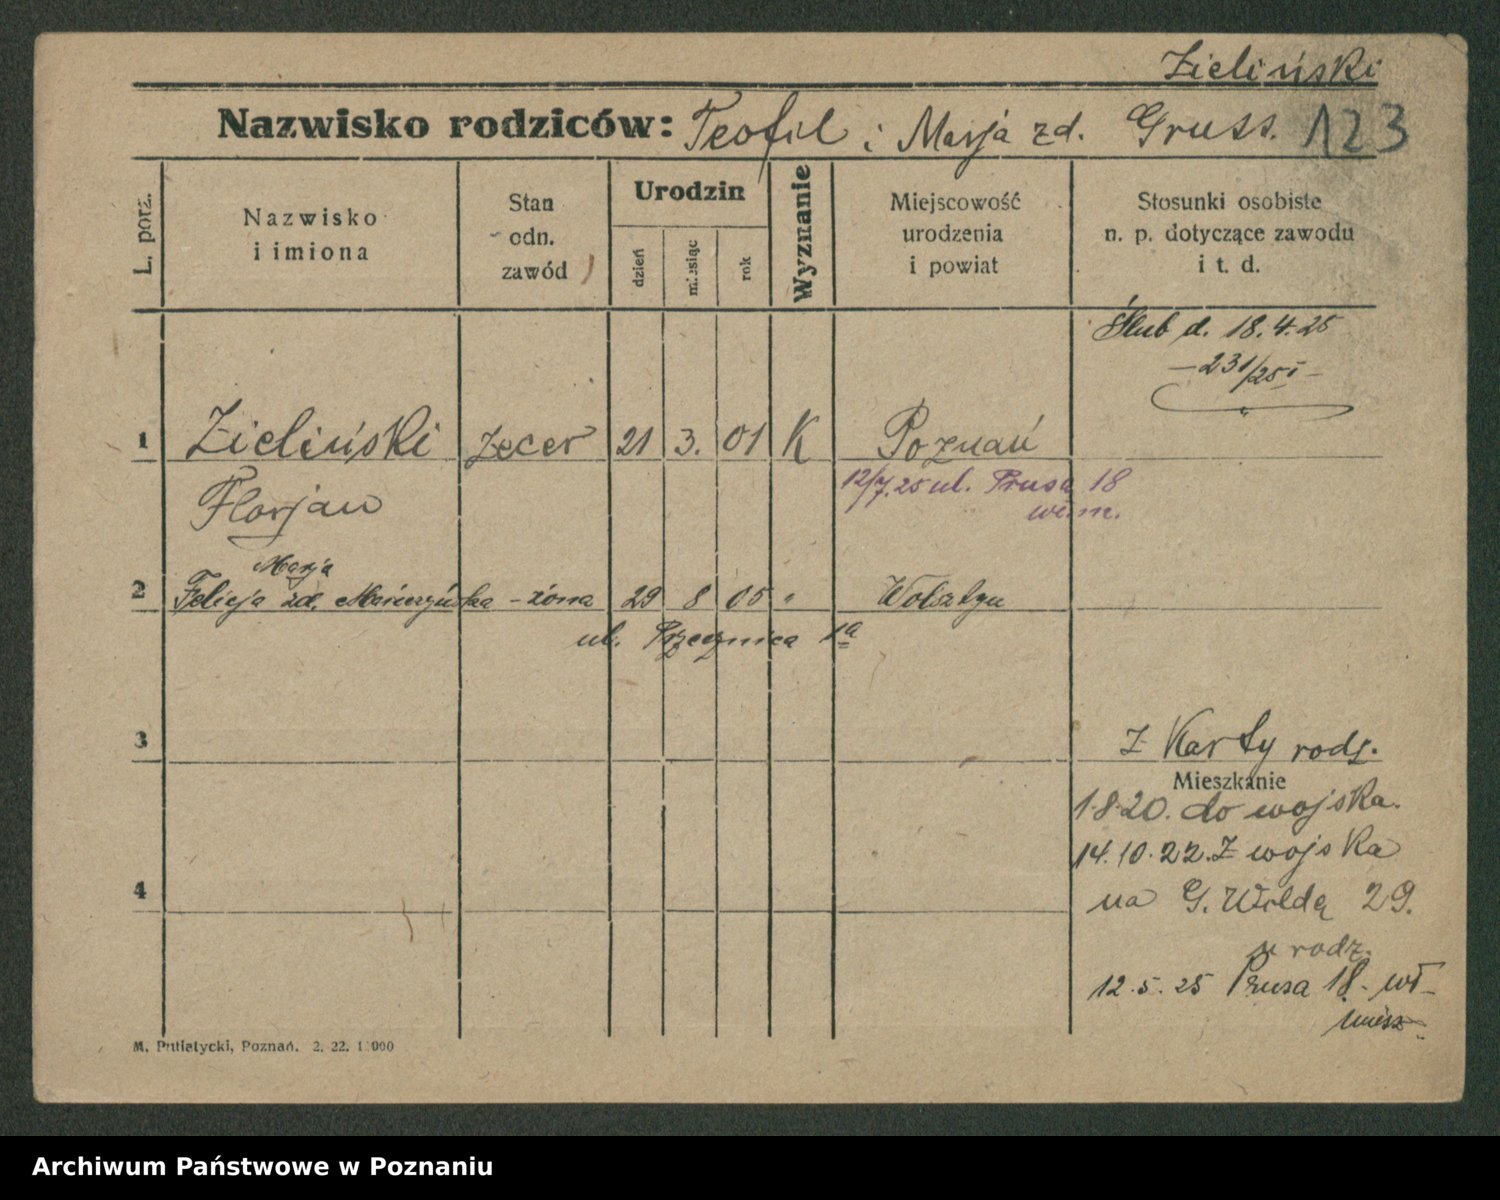 Zieliński
Nazwisko rodziców: Teofil i Marja zd. Gruss. 123
L. porz.
Nazwisko
i imiona
Stan
odn.
zawód
Urodzin
dzień
miesiąc
rok
Wyznanie
Miejscowość
urodzenia
i powiat
Stosunki osobiste
n. p. dotyczące zawodu
i t. d.
Ślub d. 18.4.25
– 231/25 I –
1 Zieliński zecer 21 3. 01 K Poznań
Florjan
12/7.25 ul. Prusa 18
wł. m.
Marja
2 Felicja zd. – żona 29 8 05 " Wolsztyn
ul. Przecznica 1a
3
Z Karty rodz.
Mieszkanie
1.8.20. do wojska.
14.10.22. Z wojska
4
na G. Wildę 29.
u rodz.
12.5.25 Prusa 18. wł-
miesz.
M. Putiatycki, Poznań. 2. 22.
Archiwum Państwowe w Poznaniu